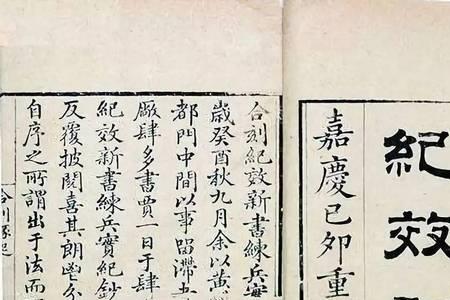 紀效
嘉慶己卯重
合刻紀效新書練兵實
歲癸酉秋九月余以黃
都門中間以事留滯五
厰肆多書賈一日于肆
紀效新書練兵實紀鈔
反覆披閱喜其朗鬯分
自序之所謂出于法而
合刊緣起